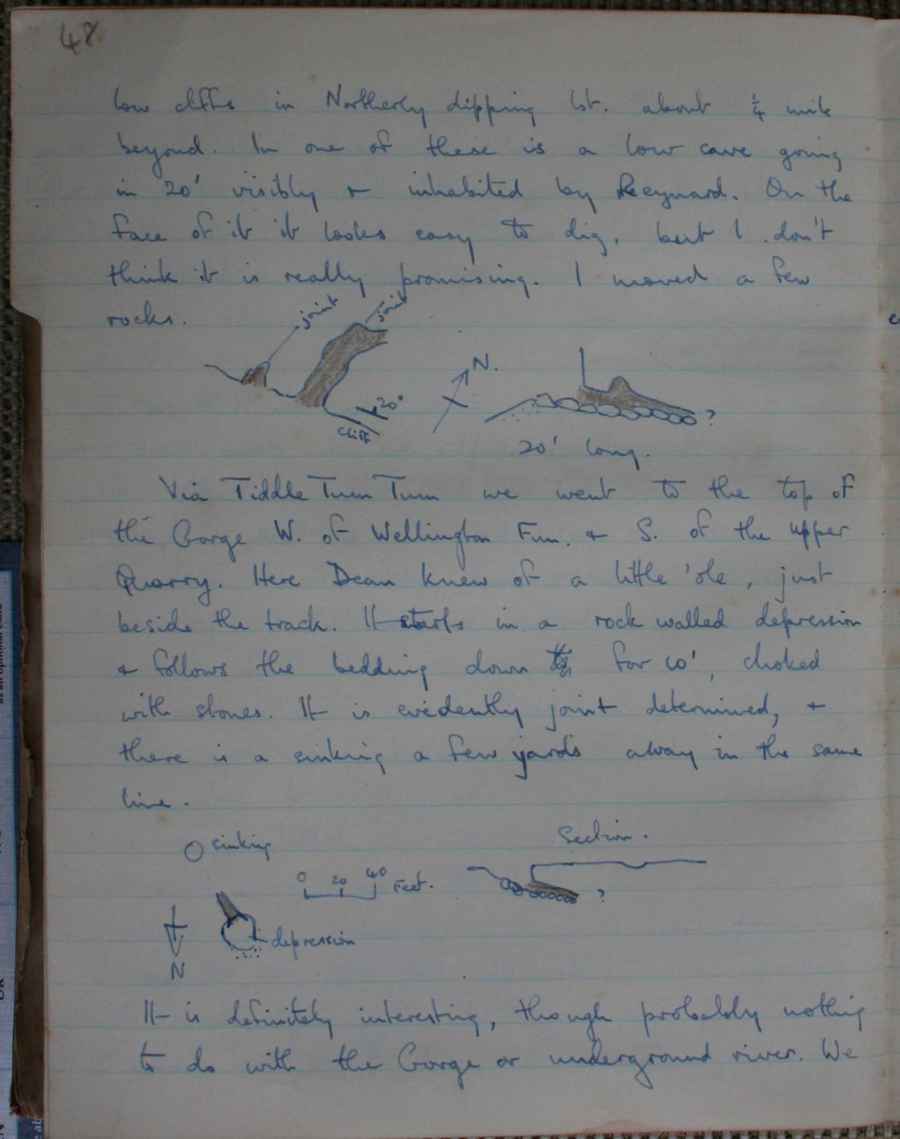 48
low cliffs in Northerly dipping lst. about ¼ mile
beyond. In one of these is a low cave going
in 20' visibly + inhabited by Reeynard. On the
face of it it looks easy to dig, but I don't
think it is really promising. I moved a few
rocks.
joint joint
N.
20°
cliff
?
20' long.
Via Tiddle Tum Tum we went to the top of
the Gorge W. of Wellington Fm. + S. of the upper
Quarry. Here Dean knew of a little 'ole, just
beside the track. It starts in a rock walled depression
+ follows the bedding down for 10', choked
with stones. It is evidently joint determined, +
there is a sinking a few yards away in the same
line.
sinking
Section.
0 20 40 Feet.
?
depression
N
It is definitely interesting, though probably nothing
to do with the Gorge or underground river. We